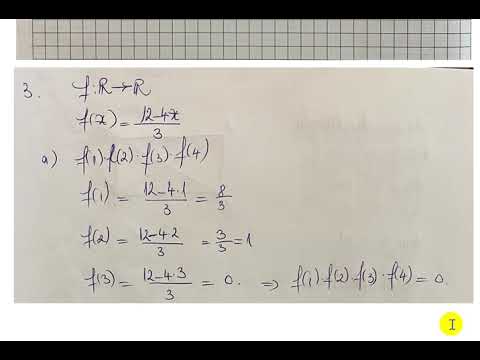 3. f:R→R
f(x) = 12-4x/3
a) f(1)·f(2)·f(3)·f(4)
f(1) = 12-4·1/3 = 8/3
f(2) = 12-4·2/3 = 3/3 = 1
f(3) = 12-4·3/3 = 0. ⇒ f(1)·f(2)·f(3)·f(4) = 0.